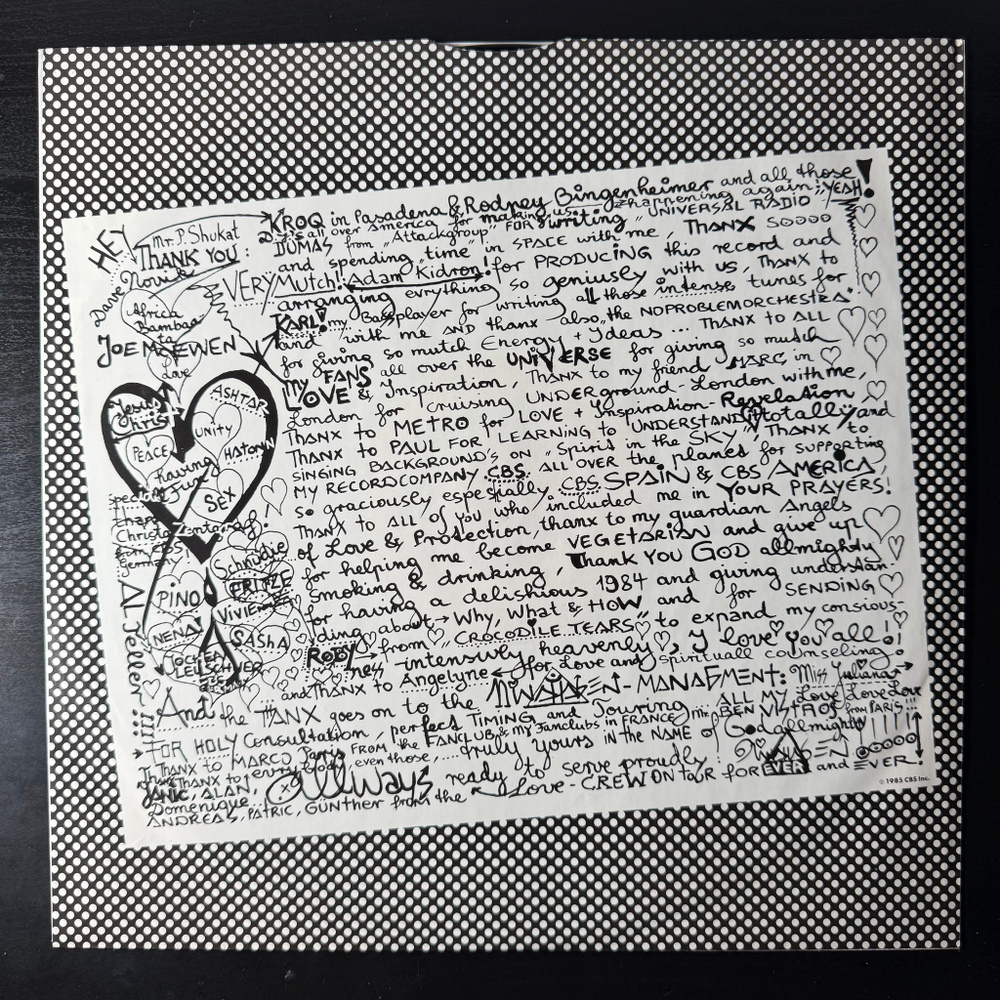 HEY
Mr. P. Shukat
THANK YOU
VERY Mutch!
Africa
Bambaa
to
JOE McEWEN
Love
Jesus
Christ
ASHTAR
UNITY
PEACE
HATONN
having
Fun
SEX
Special
thanx
Christo
from CBS
Germany
Schnudie
FRITZE
PINO
VIVIENNE
NENA!
SASHA
JOCHEN
LEUSCHNER
Al Teller!!!
KROQ in Pasadena & Rodney Bingenheimer and all those
D.J.'s all over America for making us happening again!, YEAH!
DUMAS from "Attackgroup" FOR writing "UNIVERSAL RADIO"
and spending time in SPACE with me, THANX SOOOO
Adam Kidron! for PRODUCING this record and
arranging evrything so geniusly with us, THANX to
KARL! my Bassplayer for writing all those intense tunes for
and with me AND thanx also, the NOPROBLEMORCHESTRA
for giving so mutch Energy + Ydeas ... THANX TO ALL
my FANS all over the UNIVERSE for giving so mutch
LOVE & Ynspiration, THANX to my friend MARC in
London for cruising UNDERground-London with me,
THANX to METRO for LOVE + Ynspiration-Revelation,
THANX to PAUL FOR LEARNING to UNDERSTAND totally and
SINGING BACKGROUND'S ON "Spirit in the SKY" THANX to
MY RECORDCOMPANY CBS. ALL OVER the planet for SUPPORTING
so graciously espeshially CBS. SPAIN & CBS AMERICA,
THANX to ALL of you who included me in YOUR PRAYERS!
of Love & Protection, thanx to my guardian Angels
for helping me become VEGETARIAN and give up
smoking & drinking, Thank YOU GOD allmighty
for having a delishious 1984 and giving understan-
ding about → Why, What & HOW and for SENDING
ROBY from "CROCODILE TEARS" to expand my consious-
ness intensively heavenly, I love you all!
and THANX to Angelyne for Love and spirituall counseling!
And the THANX goes on to the MINAHAGEN-MANAGMENT: Miss Juliana
FOR HOLY Consultation, perfect TIMING and Touring
ALL MY Love Love Love
THANX TO MARCO Paris FROM the FANCLUB & my Fanclubs in FRANCE
from PARIS!!!
THANX to everybody even those,... truly yours in the NAME OF God allmighty
JANIC, ALAN, allways ready to serve proudly:
Domenique, Love-CREW ON tour for EVER and EVER!
ANDREAS, PATRIC, GÜNTHER from the
© 1985 CBS Inc.